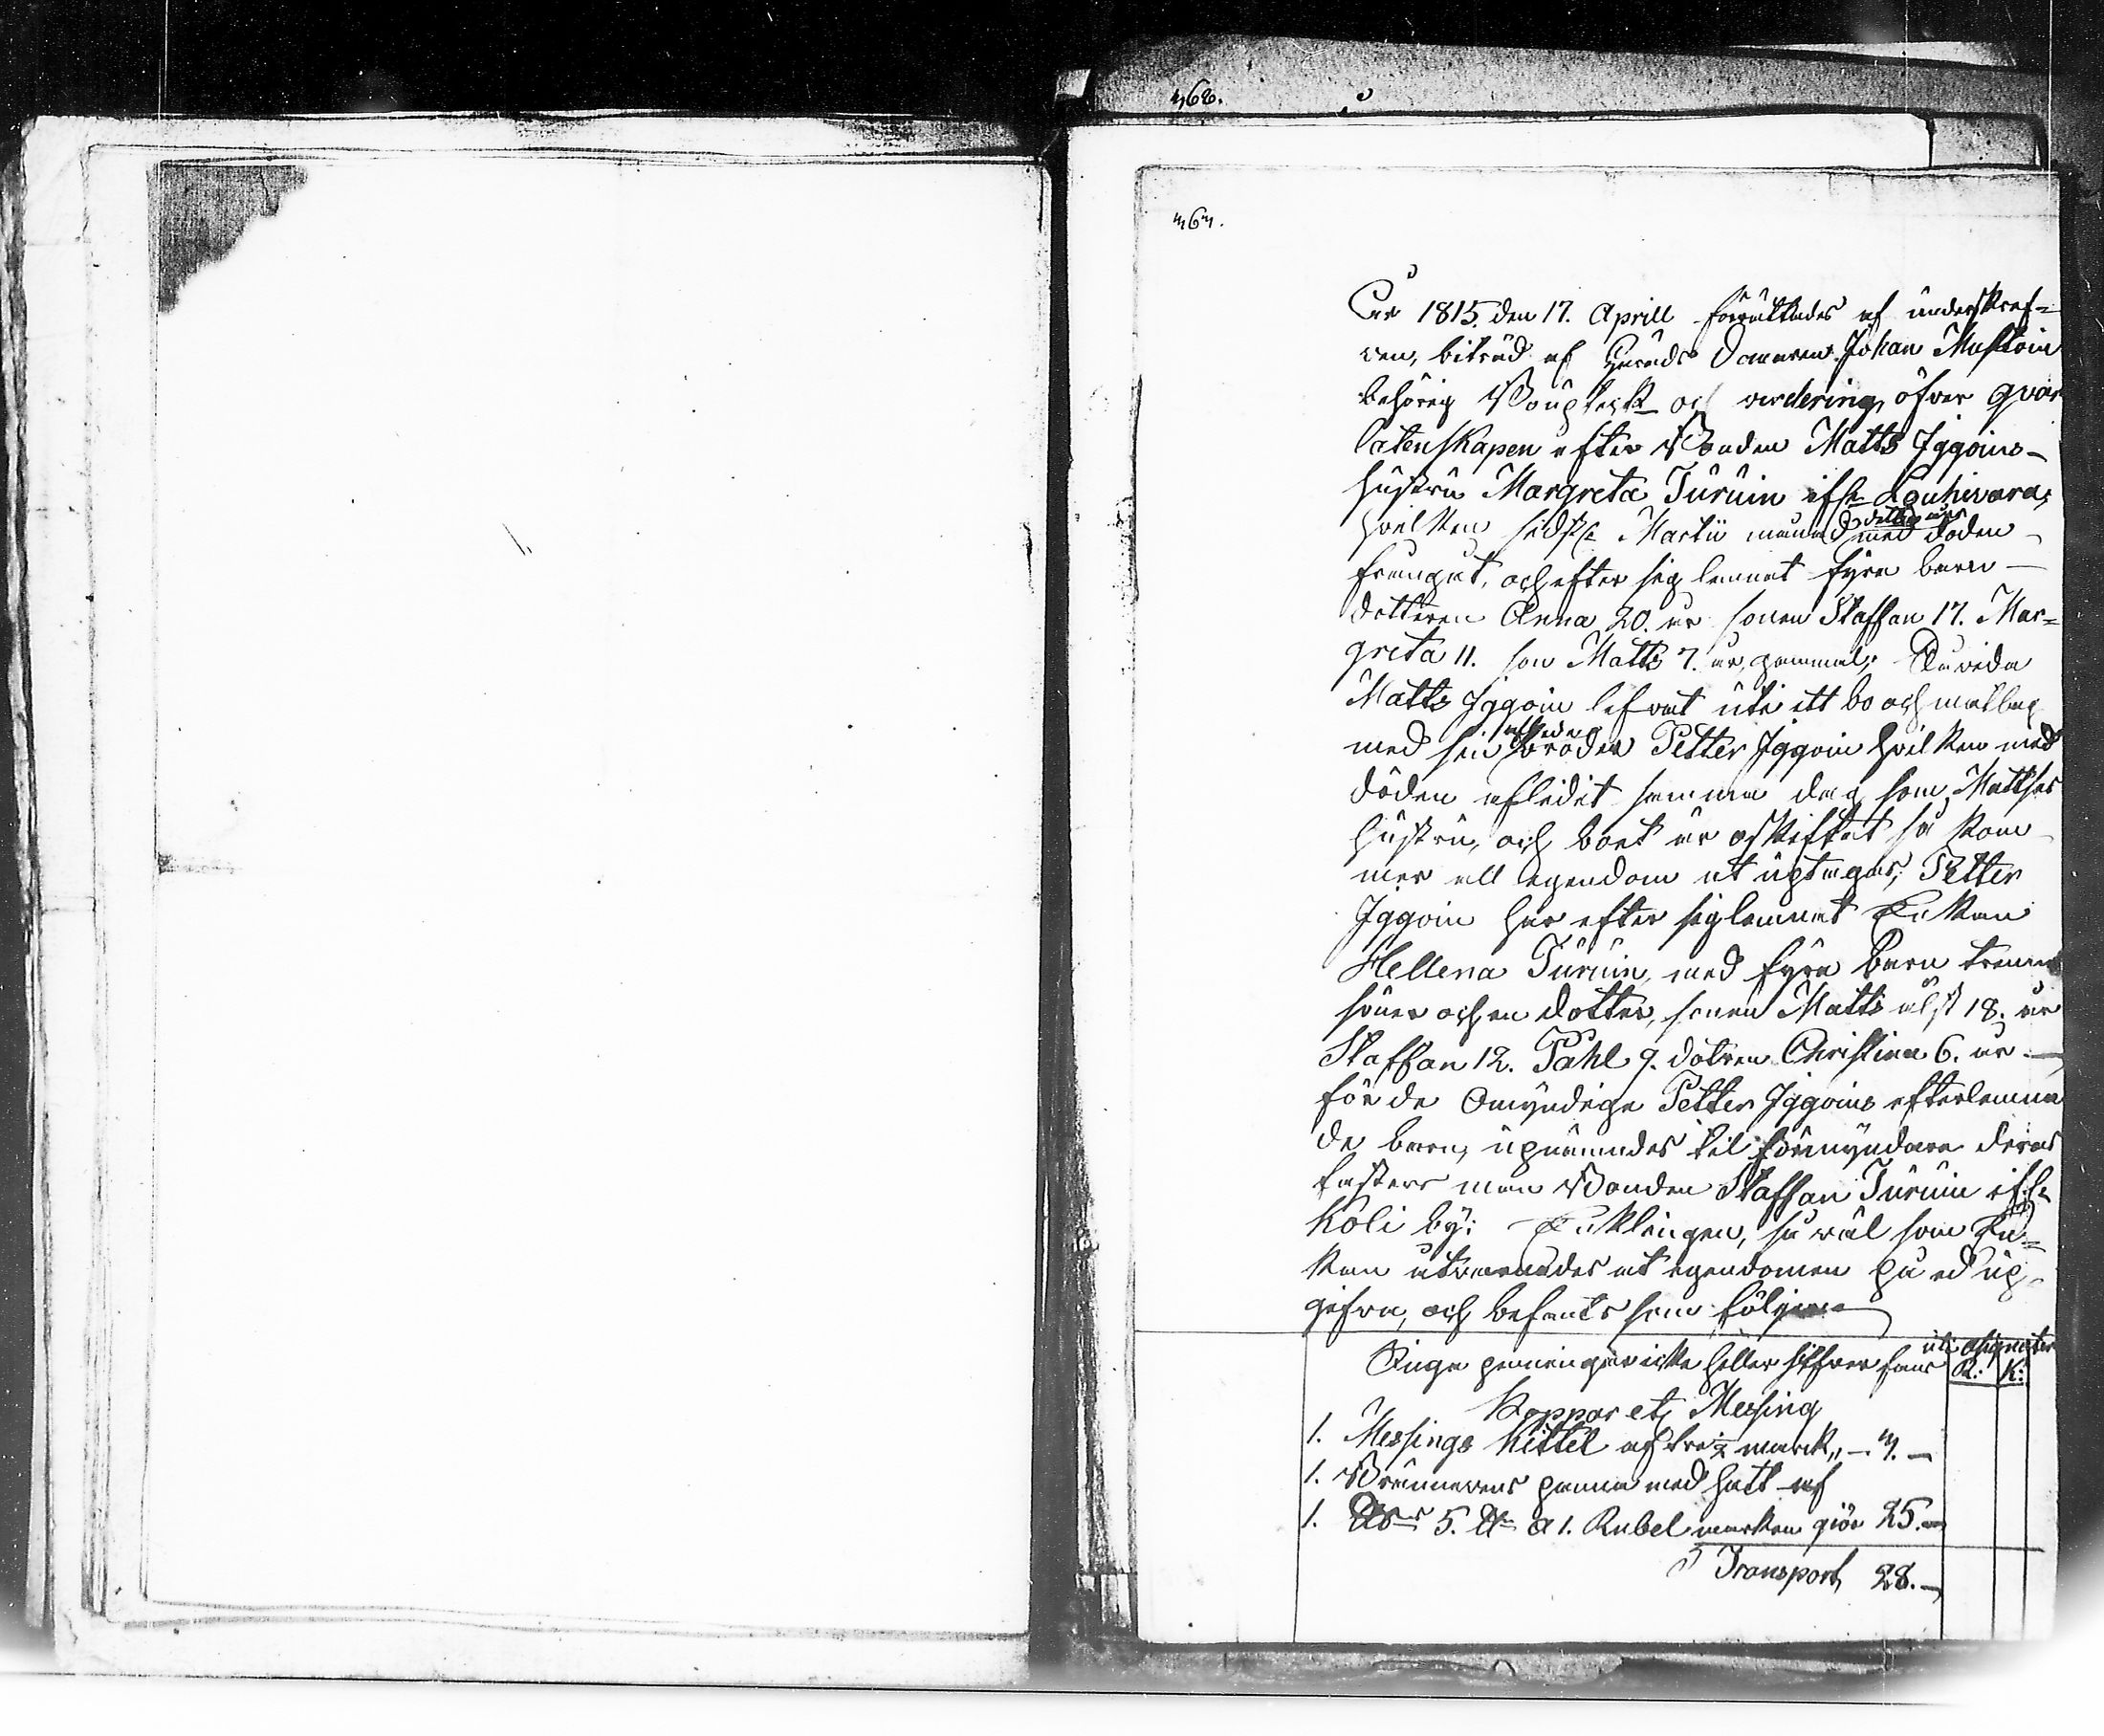 368.
367.
År 1815. den 17. Aprill förrättades af underskref=
ven, biträd af Härads Domaren Johan Mustoin
behörig Bouptekt och värdering öfver qvar
låtenskapen efter Bonden Matts Iggoins
hustru Margreta Turuin ifrån Louhivara,
hvilken sidste Martii månad detta år med döden
framgåt, och efter sig lemnat fyra barn
dotteren Anna 20. år sonen Staffan 17. Mar=
greta 11. son Matts 7. år gammal; Enär
Matts Iggoin lefvat uti ett bo och matlag
med sin aflidne broder Petter Iggoin hvilken med
döden aflidit samma dag som Mattses
hustru, och boet är oskiftat så kom
mer all egendom at uptagas; Petter
Iggoin har efter sig lemnat Enkan
Hellena Turuin, med fyra barn trenne
söner och en dotter, sonen Matts älst 18. år
Staffan 12. Påhl 9. dotren Christina 6. år
för de omyndige Petter Iggoins efterlemna
de barn, upnämndes til förmyndare deras
fasters man Bonden Staffan Turuin ifrån
Koli by: Enklingen, så väl som En=
kan utvarnades at egendomen på ed up
gifva, och befants som följer
Inga penningar icke heller silfver fans
uti assignater
R: K:
Koppar et Messing
1. Messings Kittel af tre marck, — 3. —
1. Brännevins panna med hatt af
1. 5. a 1. Rubel marken giör 25. —
Transport 28. —